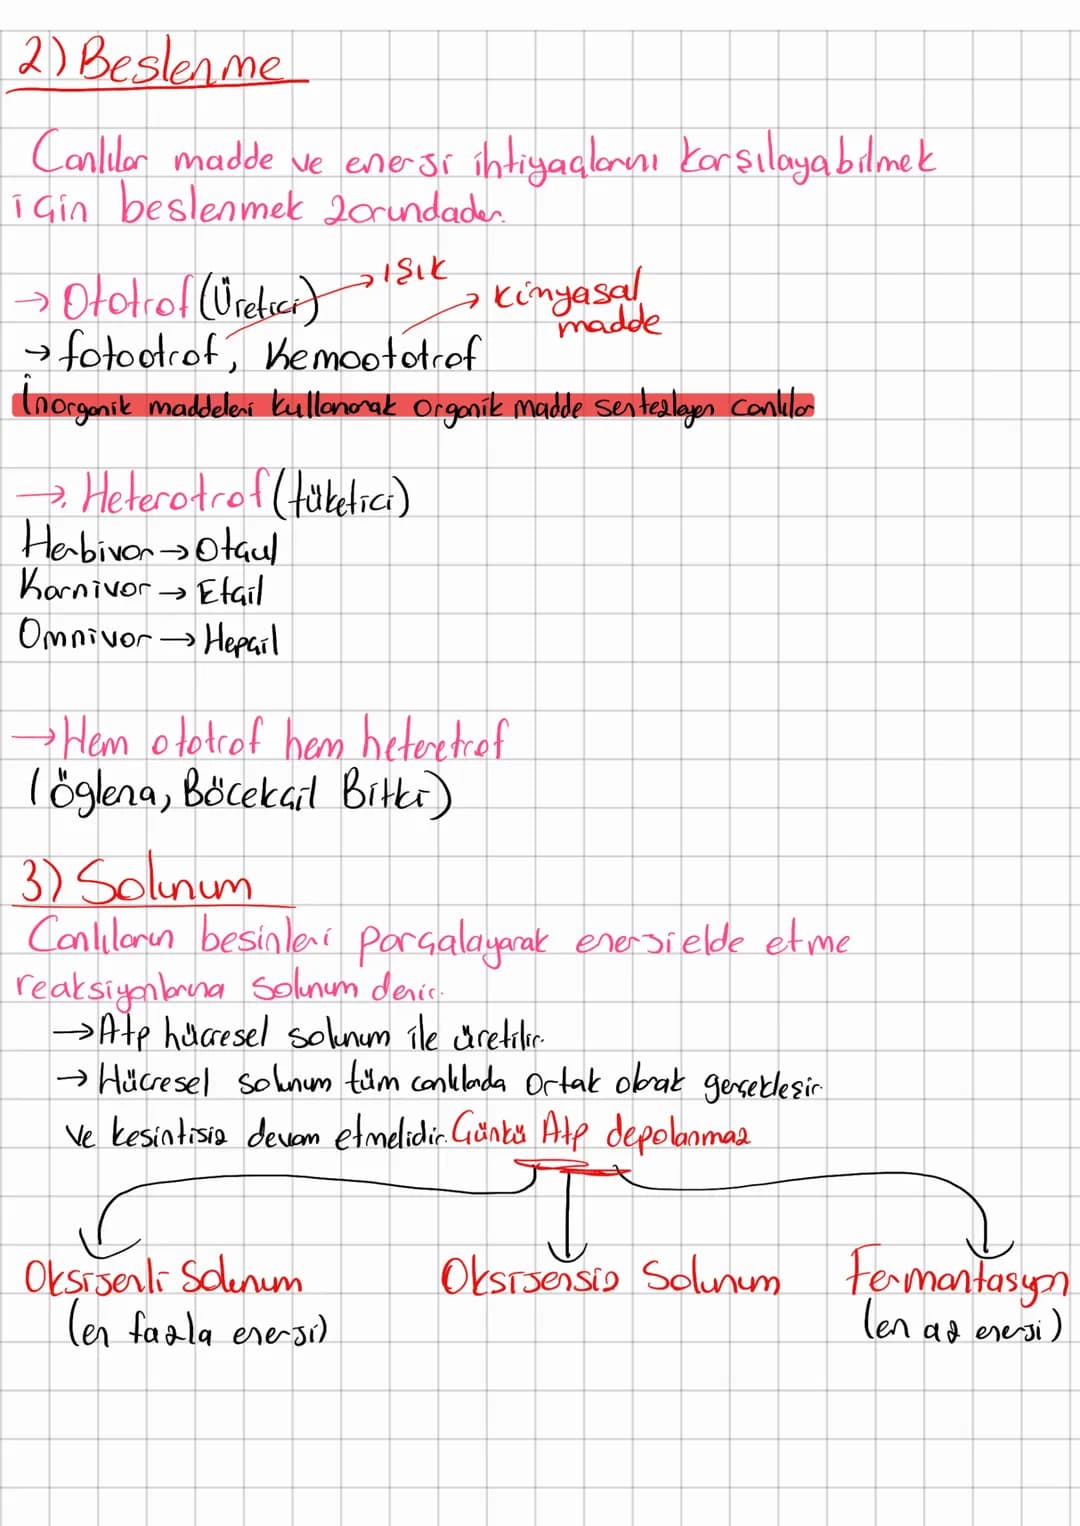 2) Beslenme
Canlılar madde ve enerji ihtiyaçlarını karşılayabilmek
için beslenmek zorundadır.
→ Ototrof (Üretici) → ışık
→ kimyasal
madde
→ fotootrof, Kemoototrof
İnorganik maddeleri kullanarak organik madde sentezleyen canlılar
→ Heterotrof (tüketici)
Herbivor → Otçul
Karnivor → Etçil
Omnivor → Hepçil
→ Hem ototrof hem heteretrof
(öglena, Böcekçil Bitki)
3) Solunum
Canlıların besinleri parçalayarak enerji elde etme
reaksiyonlarına solunum denir.
→ Atp hücresel solunum ile üretilir.
→ Hücresel solunum tüm canlılada ortak olarak gerçekleşir.
ve kesintisiz devam etmelidir. Çünkü Atp depolanmaz
Oksijenli Solunum Oksijensiz Solunum Fermantasyon
(en fazla enerji) (en az enerji)